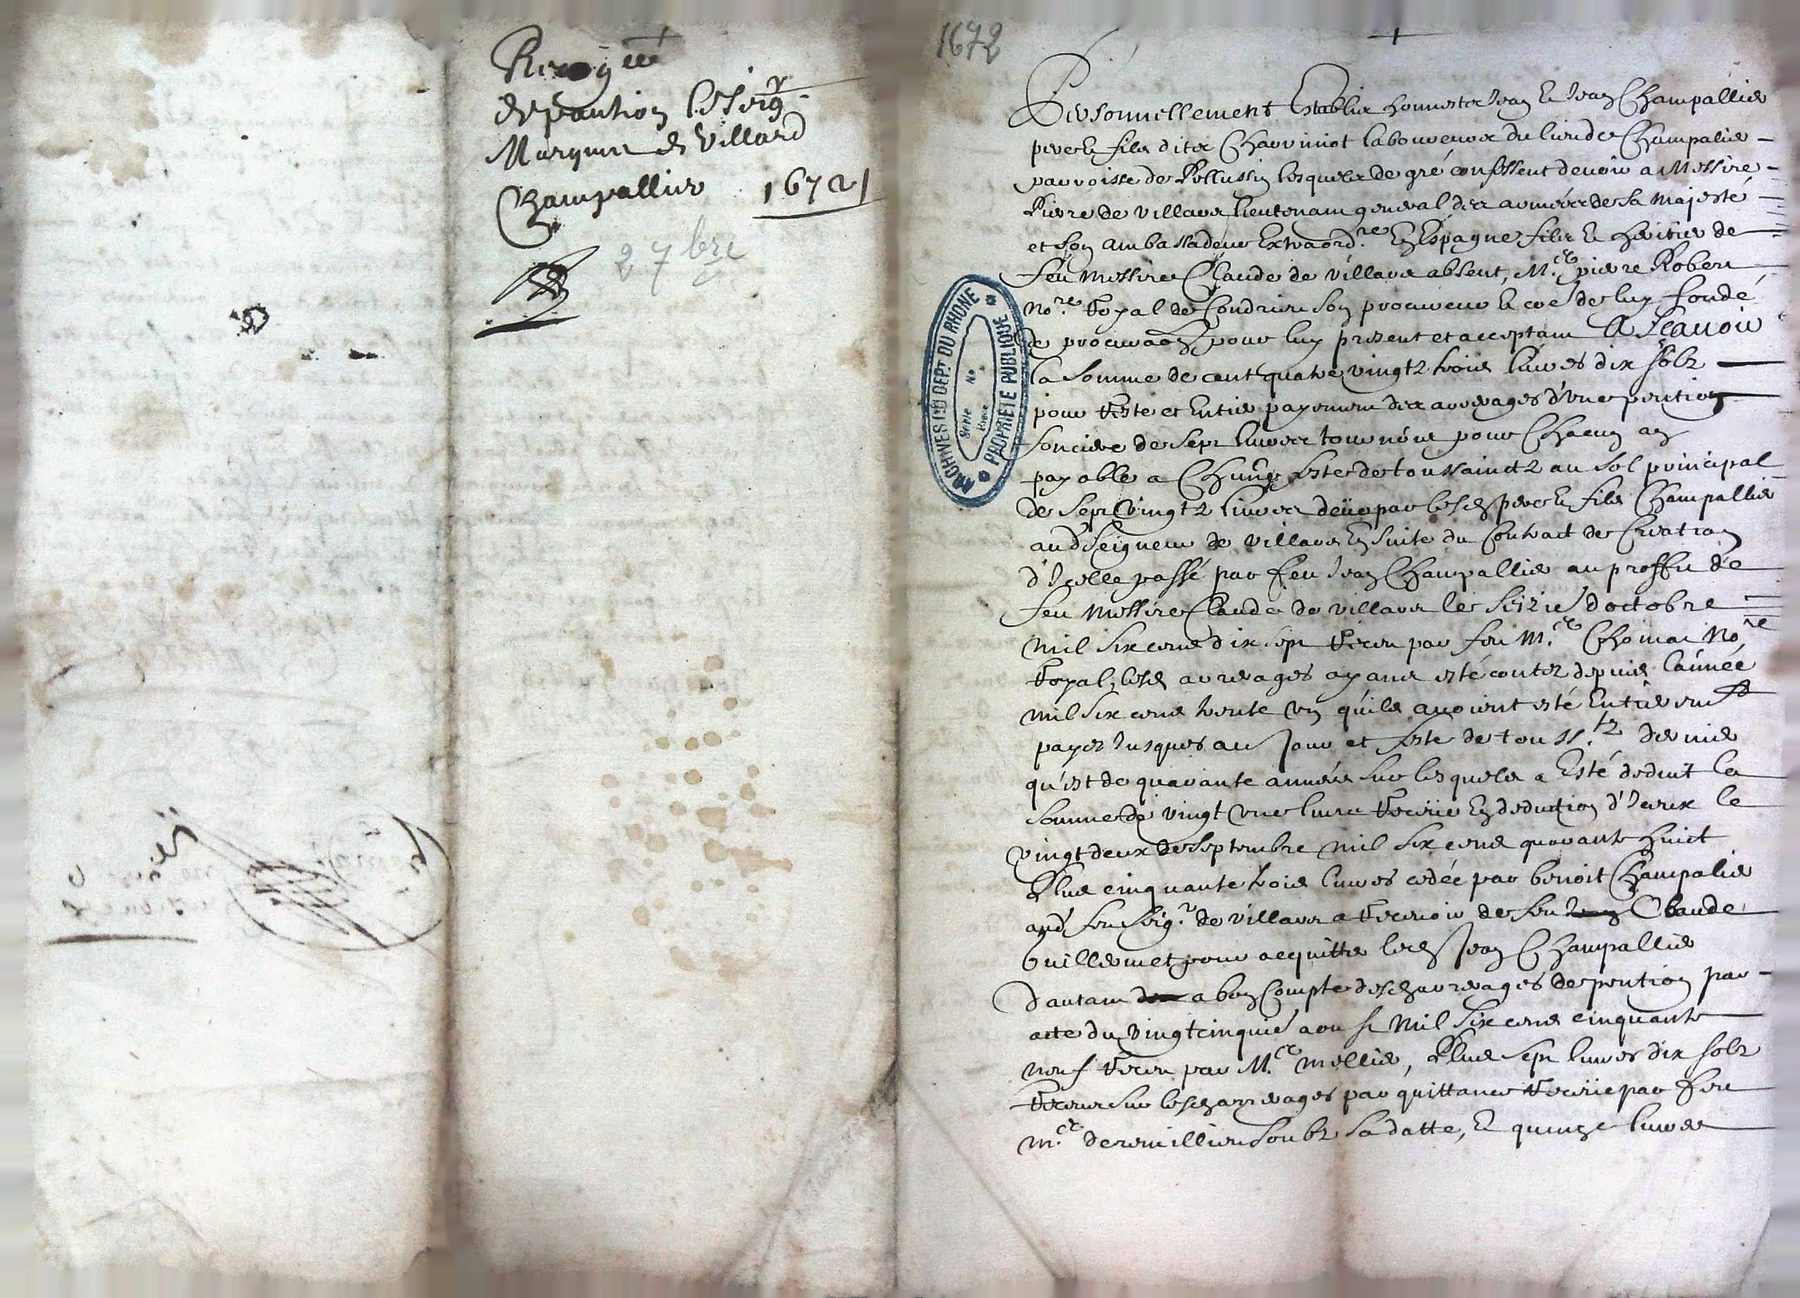 Recog.
de pantion le Seigr
Marquis de Villard
Champallier 1672
27 bre
1672
Personnellement Establis honnestes Jean & Jean Champallier
pere & fils dits Chavuinot laboureurs du lieu de Champalier
parroisse de Pellussin lesquels de gré confessent devoir a Messire
Pierre de Villars lieutenant general des armées de sa majesté
et son ambassadeur Extraord.re En Espagne fils & heritier de
feu Messire Claude de Villars absent, M.e pierre Robert
No.re Royal de Condrieu son procureur & de luy fondé
de pour luy present et acceptant A Scavoir
la somme de cent quatre vingtz trois livres dix solz
pour reste et Entier payement des arrerages d'une pention
fonciere de sept livres tournois pour Chacun an
payable a Chacune feste de toussainctz au sol principal
de sept vingtz livres deüe par lesd pere & fils Champallier
aud Seigneur de Villars En suite du Contract de Creation
d'Icelle passé par feu Jean Champallier au proffit de
feu Messire Claude de Villars le seizie d'octobre
mil six cens dix sept Receu par feu M.e Thomas No.re
Royal, lesd arrerages ayant esté contez depuis l'année
mil six cens trente un qu'ils avoient esté Entierem
payez Jusques au Jour et feste de touss.tz dernier
qu'est de quarante années sur lesquels a Esté deduit la
somme de vingt une livre Receüe En deduction d'Iceux le
vingt deux de Septembre mil six cens quarante huict
Plus cinquante trois livres cedée par benoit Champalier
aud feu Seig.r de Villars a Recevoir de feu Claude
Guillermet pour acquitter led Jean Champallier
d'autant a bon Compte desd arrerages de pention par
acte du vingt cinquie aoust Mil six cens cinquante
neuf Receu par M.e Mellier, Plus sept livres dix solz
Receus sur lesd arrerages par quittance Receüe par feu
M.e soubz sa datte, & quinze livres
ARCHIVES DU DEPT DU RHONE
PROPRIETE PUBLIQUE
Serie
No